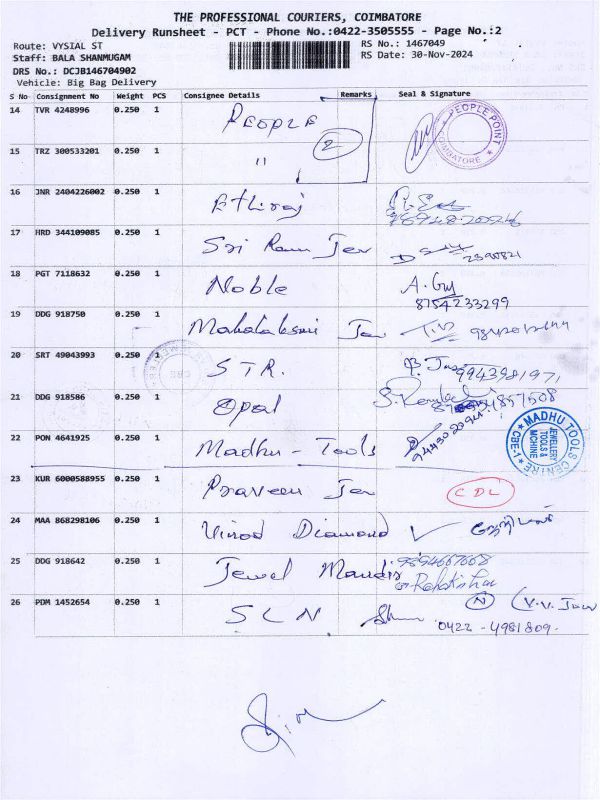 THE PROFESSIONAL COURIERS, COIMBATORE
Delivery Runsheet - PCT - Phone No.:0422-3505555 - Page No.:2
Route: VYSIAL ST RS No.: 1467049
Staff: BALA SHANMUGAM RS Date: 30-Nov-2024
DRS No.: DCJB146704902
Vehicle: Big Bag Delivery
S No Consignment No Weight PCS Consignee Details Remarks Seal & Signature
14 TVR 4248996 0.250 1 PEOPLE PEOPLE POINT COIMBATORE
2
15 TRZ 300533201 0.250 1 "
16 JNR 2404226002 0.250 1 Ethiraj
17 HRD 344109085 0.250 1 Sri Ram Jew 2390821
18 PGT 7118632 0.250 1 Noble A. Guy
8754233299
19 DDG 918750 0.250 1 Mahalaksmi Jew
20 SRT 49043993 0.250 1 STR. 9943981971
21 DDG 918586 0.250 1 Opal
22 PON 4641925 0.250 1 Madhu - Tools MADHU TOOLS CENTRE CBE-1 JEWELLERY TOOLS & MCHINE
23 KUR 6000588955 0.250 1 Praveen Jew CDL
24 MAA 868298106 0.250 1 Vinod Diamond
25 DDG 918642 0.250 1 Jewel Mandir
26 PDM 1452654 0.250 1 SLN N (V.V. Jew
0422 - 4981809.